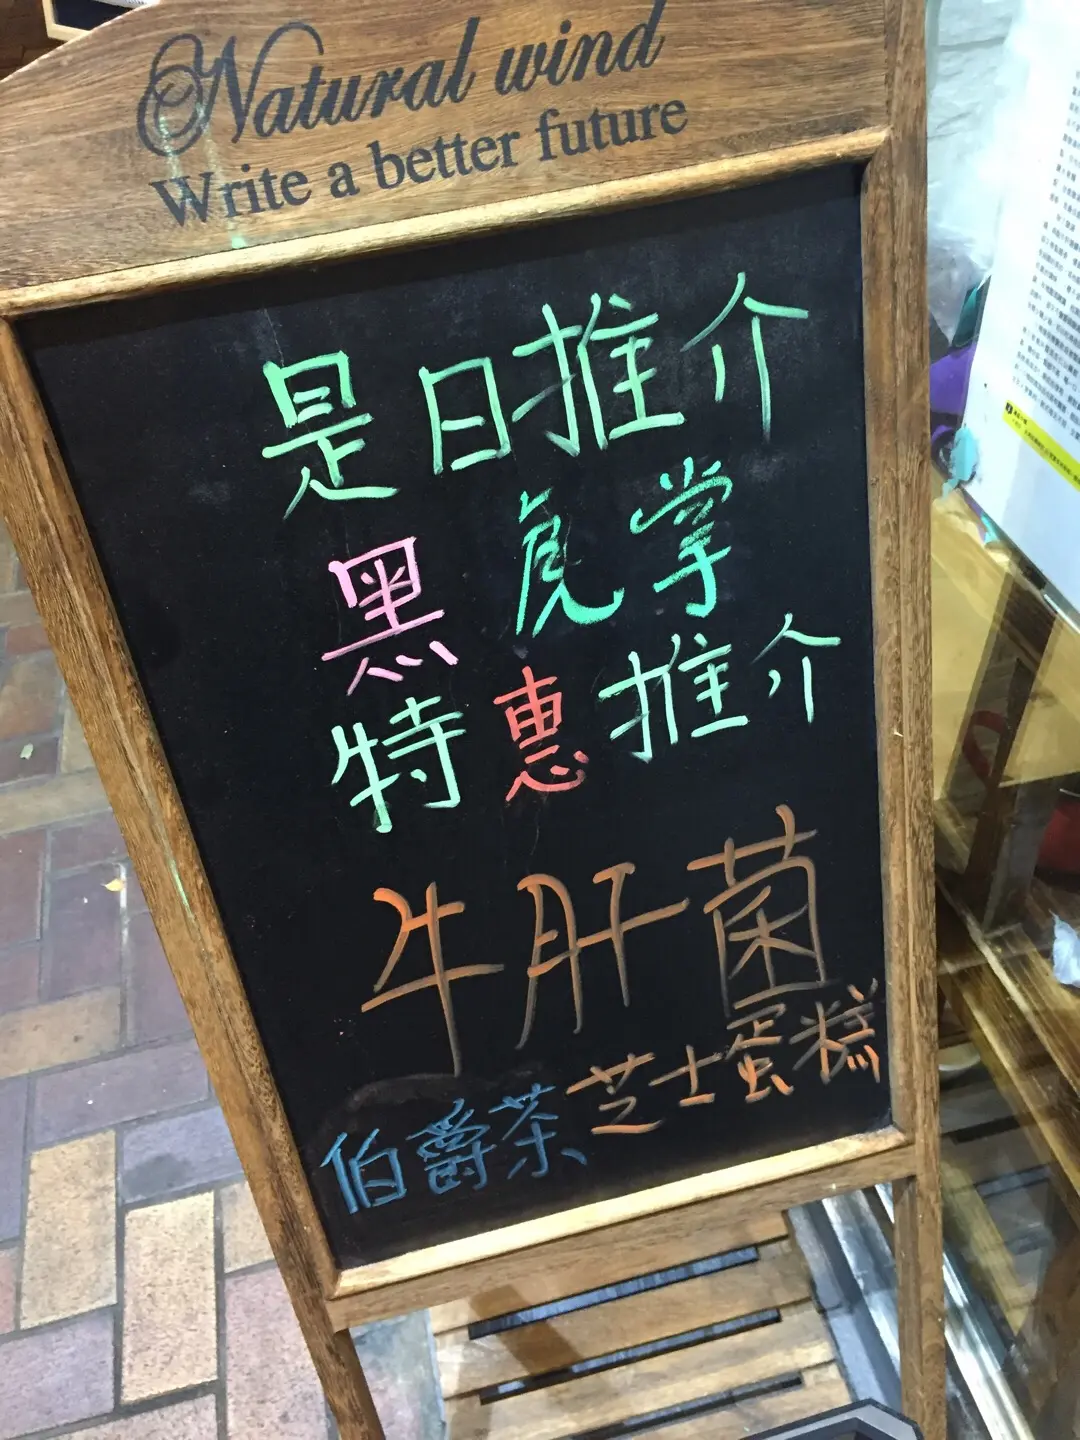 Natural wind
Write a better future
是日推介
黑虎掌
特惠推介
牛肝菌
伯爵茶芝士蛋糕